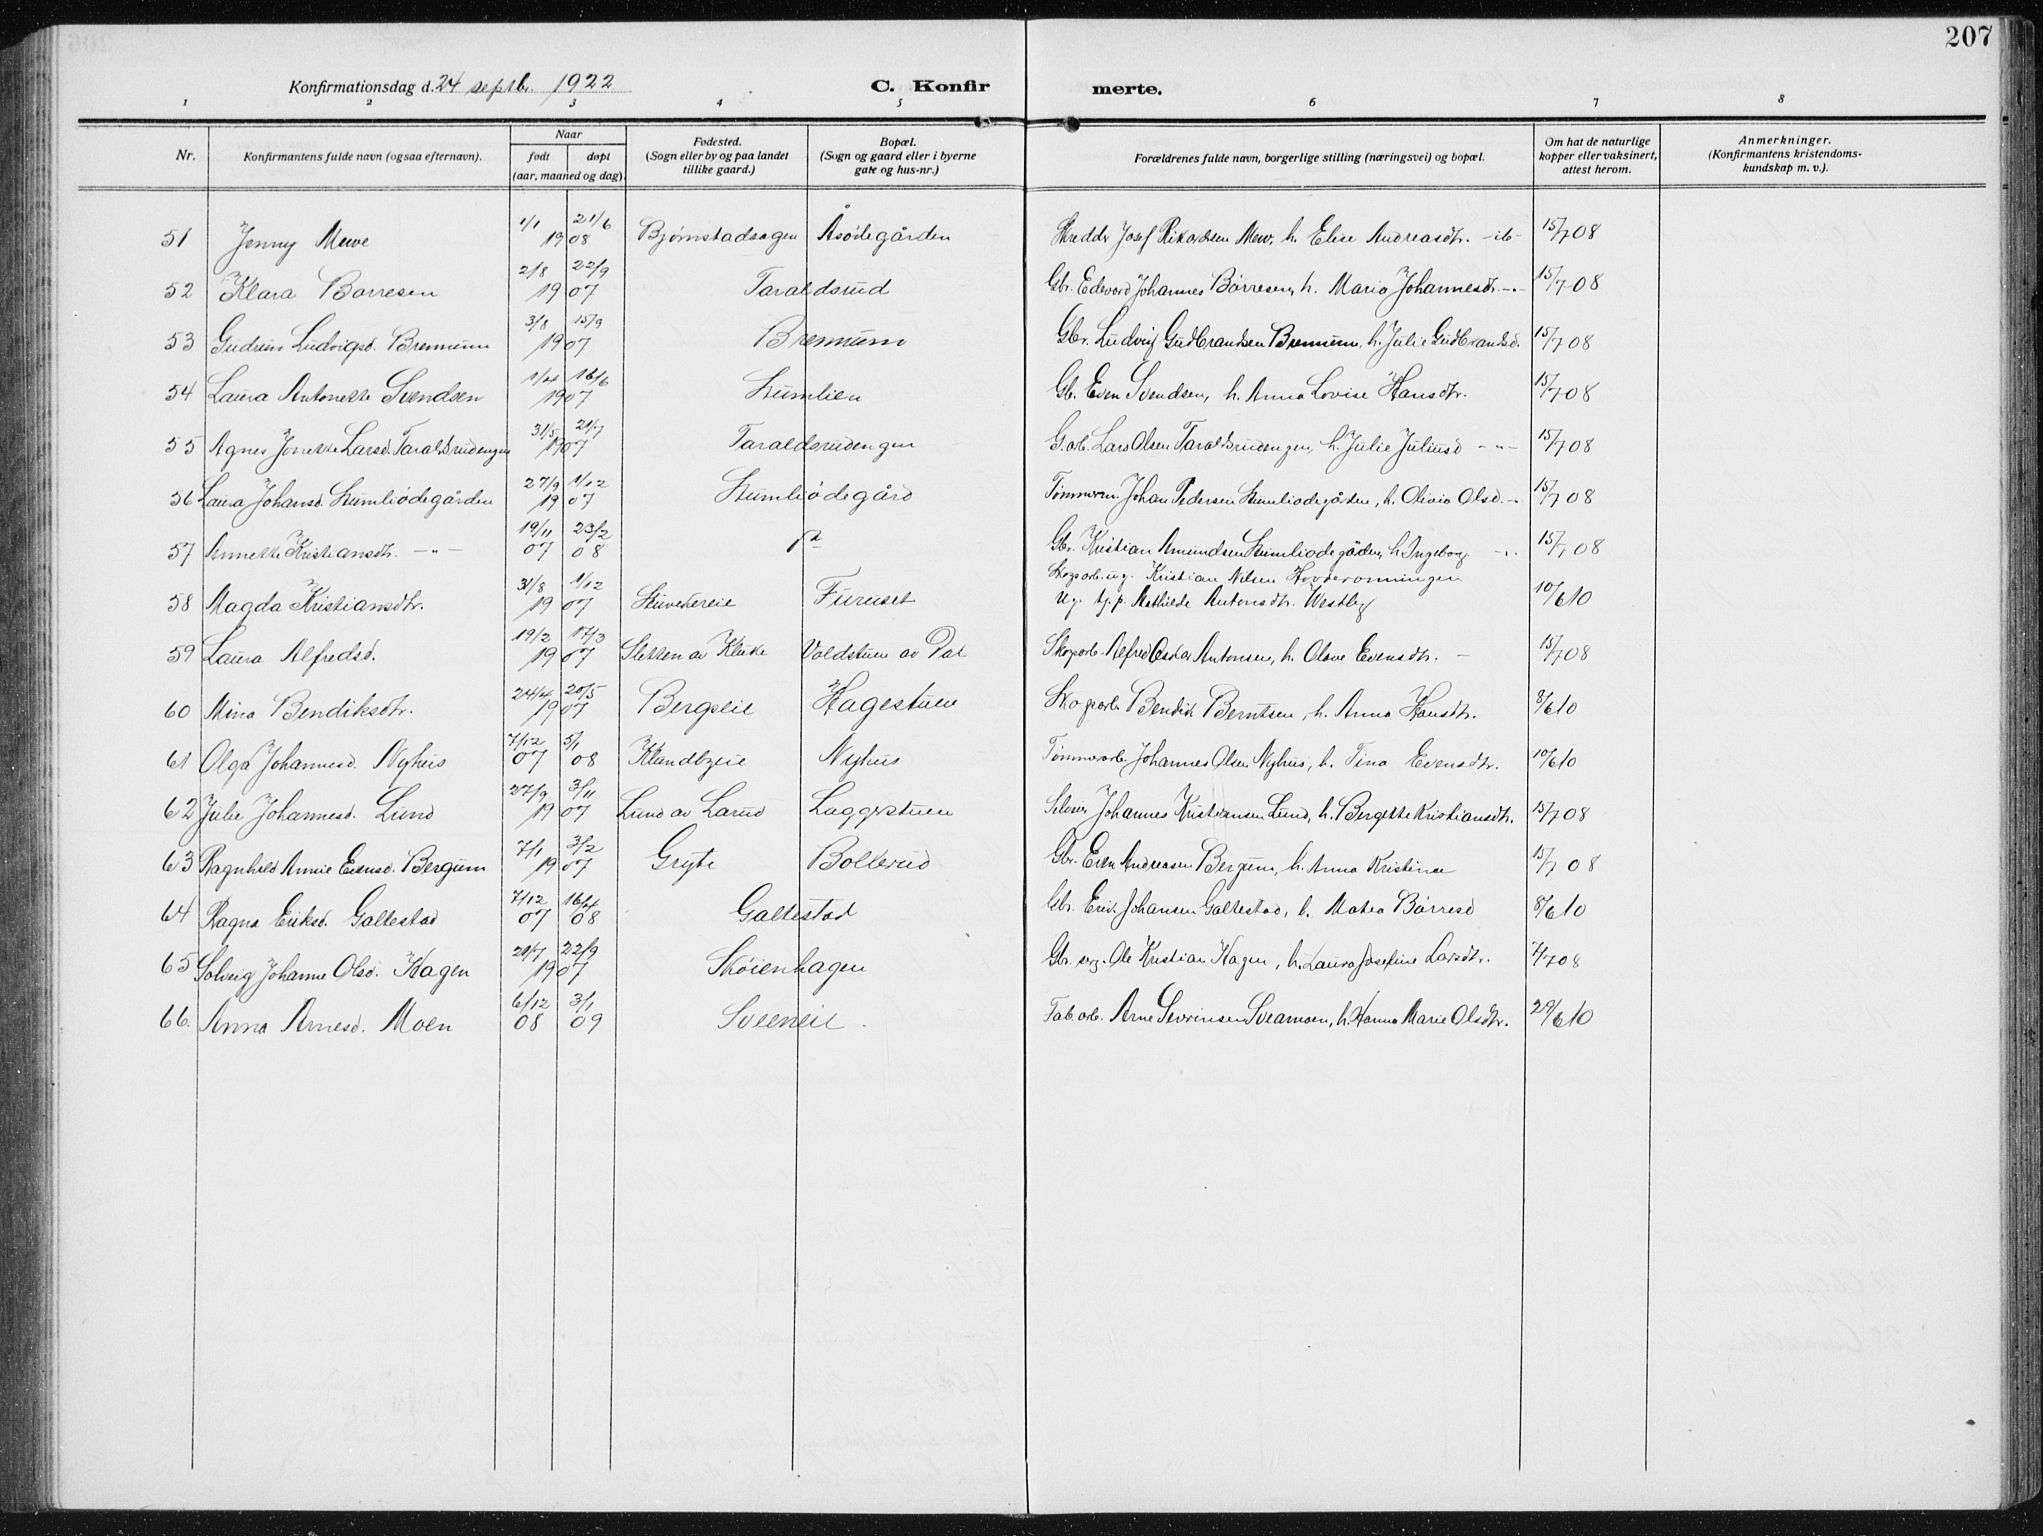 207
Konfirmationsdag d. 24 septb. 1922
C. Konfirmerte.
1 2 3 4 5 6 7 8
Nr.
Konfirmantens fulde navn (ogsaa efternavn).
Naar
født døpt
(aar, maaned og dag).
Fødested.
(Sogn eller by og paa landet
tillike gaard.)
Bopæl.
(Sogn og gaard eller i byerne
gate og hus-nr.)
Forældrenes fulde navn, borgerlige stilling (næringsvei) og bopæl.
Om hat de naturlige
kopper eller vaksinert,
attest herom.
Anmerkninger.
(Konfirmantens kristendoms-
kundskap m. v.).
51 Jenny Mewe 1/1 21/6 1908 Bjørnstadhagen Åsødegården Skreddr Josef Rikardsen Mew, h. Elise Andreasdtr. 15/7 08
52 Klara Børresen 2/8 22/9 1907 Taraldsrud Gbr. Edevard Johannes Børresen, h. Maria Johannesdtr. 15/7 08
53 Gudrun Ludvigsd. Brennum 3/8 15/9 1907 Brennum Gbr. Ludvig Gudbrandsen Brennum, h. Julie Gudbrandsd. 15/7 08
54 Laura Antonette Svendsen 1/4 16/6 1907 Humlien Gb. Even Svendsen, h. Anna Lovise Hansdtr. 15/7 08
55 Agnes Jonette Larsd. Taraldsrudengen 31/5 21/7 1907 Taraldsrudengen G.arb. Lars Olsen Taraldsrudengen, h. Julie Juliusd 15/7 08
56 Laura Johansd. Humliødegården 27/9 1/12 1907 Humliødegård Tømmerm. Johan Pedersen Humliødegården, h. Olivia Olsd. 15/7 08
57 Annette Kristiansdtr. -"- 19/11 07 23/2 08 Gbr. Kristian Amundsen Humliødegården, h. Ingeborg 15/7 08
58 Magda Kristiansdtr. 31/8 1/12 1907 Furuset Skogarb. ug. Kristian Nilsen Hovderønningen
Ug. tj.p. Mathilde Antonsdtr. Westby 10/6 10
59 Laura Alfredsd. 19/2 17/3 1907 Sletten av Kluke Voldstuen av Dal Skogarb. Alfred Oskar Antonsen, h. Olave Evensdtr. 15/7 08
60 Mina Bendiksdtr. 24/4 20/5 1907 Bergseie Hagestuen Skogarb. Bendik Berntsen, h. Anna Hansdtr. 8/6 10
61 Olga Johannesd. Nyhus 7/12 07 5/1 08 Klundbyeie Nyhus Tømmerarb. Johannes Olsen Nyhus, h. Tina Evensdtr. 10/6 10
62 Julie Johannesd. Lund 27/9 3/11 1907 Lund av Larud Laggerstuen Johannes Kristiansen Lund, h. Bergette Kristiansdtr. 15/7 08
63 Ragnhild Annie Evensd. Bergum 7/1 3/2 1907 Gryte Bollerud Gbr. Even Andreasen Bergum, h. Anna Kristine 15/7 08
64 Ragna Eriksd. Galtestad 7/12 07 16/4 08 Galtestad Gbr. Erik Johansen Galtestad, h. Matea Børresd 8/6 10
65 Solveig Johanne Olsd. Hagen 21/7 22/9 1907 Skøienhagen Gbr. Ole Kristian Hagen, h. Laura Josefine Larsdtr. 7/7 08
66. Anna Arnesd. Moen 6/12 08 3/1 09 Sveeneie. Fab.arb. Arne Severinsen Sveamoen, h. Hanna Marie Olsdtr. 29/6 10